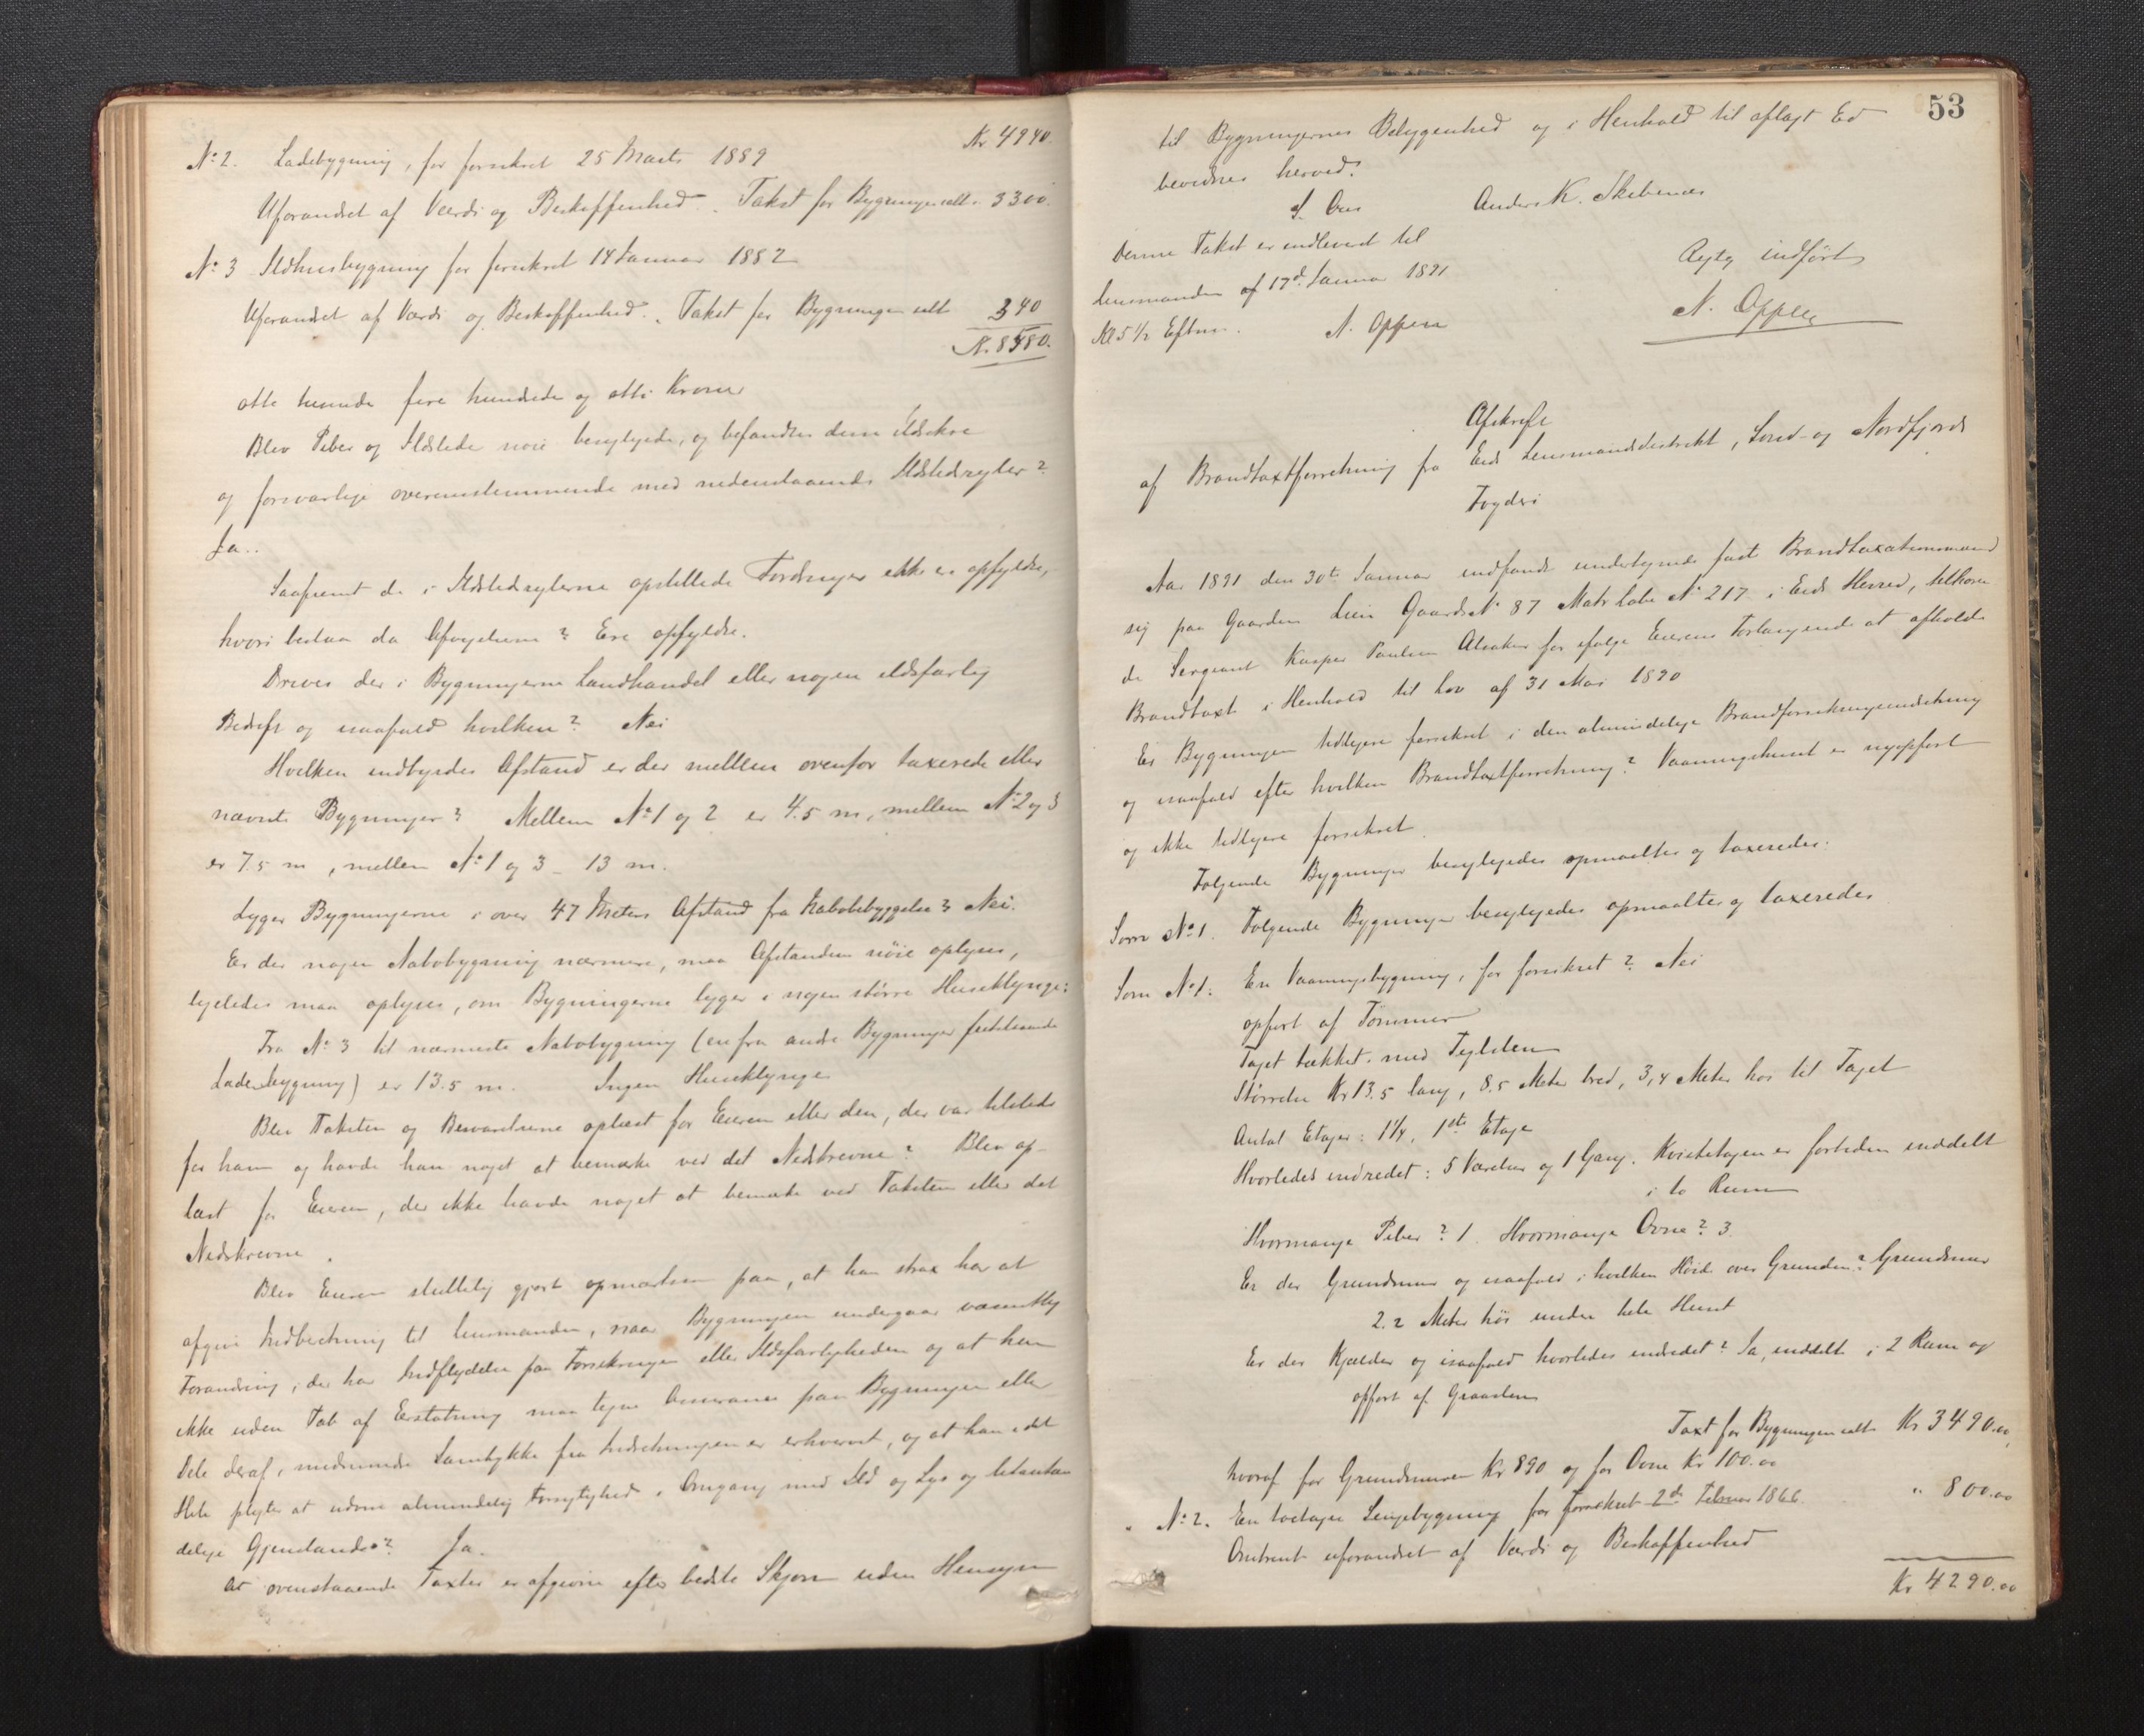 Kr 4940.
No 2. Ladebygning, før forsikret 25 Marts 1889
Uforandret af Værdi og Beskaffenhed. Takst for Bygningen ialt " 3300.
No 3 Ildhusbygning før forsikret 14 Januar 1882
Uforandret af Værdi og Beskaffenhed. Takst for Bygningen ialt 340
Kr. 8580.
otte tusinde fire hundrede og otti Kroner
Blev Piber og Ildsteder nøie besigtigede, og befandtes disse ildsikre
og forsvarlige overensstemmende med nedenstaaende Ildstedregler?
Ja..
Saafremt de i Ildstedreglerne opstillede Fordringer ikke er opfyldte,
hvori bestaa da Afvigelserne? Ere opfyldte.
Drives der i Bygningerne Landhandel eller nogen ildsfarlig
Bedrift og isaafald hvilken? Nei
Hvilken indbyrdes Afstand er der mellem ovenfor taxerede eller
nævnte Bygninger? Mellem No 1 og 2 er 4.5 m, mellem No 2 og 3
er 7.5 m, mellem No 1 og 3 - 13 m.
Ligger Bygningerne i over 47 Meters Afstand fra Nabobebyggelse? Nei.
Er der nogen Nabobygning nærmere, maa Afstanden nøie oplyses,
ligeledes maa oplyses, om Bygningerne ligger i nogen større Husklynge:
Fra No 3 til nærmeste Nabobygning (en fra andre Bygninger fritstaaende
Ladebygning) er 13.5 m. Ingen Husklynge
Blev Taksten og Besvarelserne oplæst for Eieren eller den, der var tilstede
for ham og havde han noget at bemærke ved det Nedskrevne? Blev op-
læst for Eieren, der ikke havde noget at bemærke ved Taksten eller det
Nedskrevne.
Blev Eieren skriftlig gjort opmærksom paa, at han strax har at
afgive Indberetning til Lensmanden, naar Bygningen undergaar væsentlig
Forandring, der har Indflydelse paa Forsikringen eller Ildsfarligheden og at han
ikke uden Tab af Erstatning maa tegne Assurance paa Bygningen eller
Dele deraf, medmindre Samtykke fra Indretningen er erhvervet, og at han i det
Hele pligter at udvise almindelig Forsigtighed i Omgang med Ild og Lys og letantæn
delige Gjenstande? Ja.
At ovenstaaende Taxter er afgivne efter bedste Skjøn uden Hensyn
53
til Bygningernes Beliggenhed og i Henhold til aflagt Ed
bevidnes herved.
Anders K. Skibenes
Denne Takst er indleveret til
Lensmanden af 17de Januar 1891
Kl 5 1/2 Efterm. N. Oppen
Rigtig indført
N. Oppen
Afskrift
af Brandtaxtforretning fra Eids Lensmandsdistrikt, Sønd- og Nordfjords
Fogderi
Aar 1891 den 30te Januar indfandt undertegnede faste Brandtaxationsmænd
sig paa Gaarden Lien Gaards No 87 Matr Løbe No 217 i Eids Herred, tilhøren
de Sergeant Kasper Paulsen Alsaker for ifølge Eierens Forlangende at afholde
Brandtaxt i Henhold til Lov af 31 Mai 1890
Er Bygningen tidligere forsikret i den almindelige Brandforsikringsindretning
og isaafald efter hvilken Brandtaxtforretning? Vaaningshuset er nyopført
og ikke tidligere forsikret.
Følgende Bygninger besigtigedes opmaaltes og taxeredes:
Som No 1. Følgende Bygninger besigtigedes opmaaltes og taxeredes
Som No 1. En Vaaningsbygning, før forsikret? Nei
opført af Tømmer
Taget tækket med Teglsten
Størrelse Kr 13.5 lang, 8.5 Meter bred, 3,4 Meter høi til Taget
Antal Etager: 1 1/4, 1ste Etage
Hvorledes indredet: 5 Værelser og 1 Gang. Kvistetagen er fortiden inddelt
i to Rum
Hvormange Piber? 1. Hvormange Ovne? 3
Er der Grundmur og isaafald i hvilken Høide over Grunden? Grundmur
2.2 Meter høi under hele Huset
Er der Kjælder og isaafald hvorledes indredet? Ja, inddelt i 2 Rum og
opført af Graasten
Taxt for Bygningen ialt Kr 3490.00
hvoraf for Grundmuren Kr 890 og for Ovne Kr 100.00
" No 2. En toetages Længebygning før forsikret 2de Februar 1866. " 800.00
Omtrent uforandret af Værdi og Beskaffenhed
Kr 4290.00